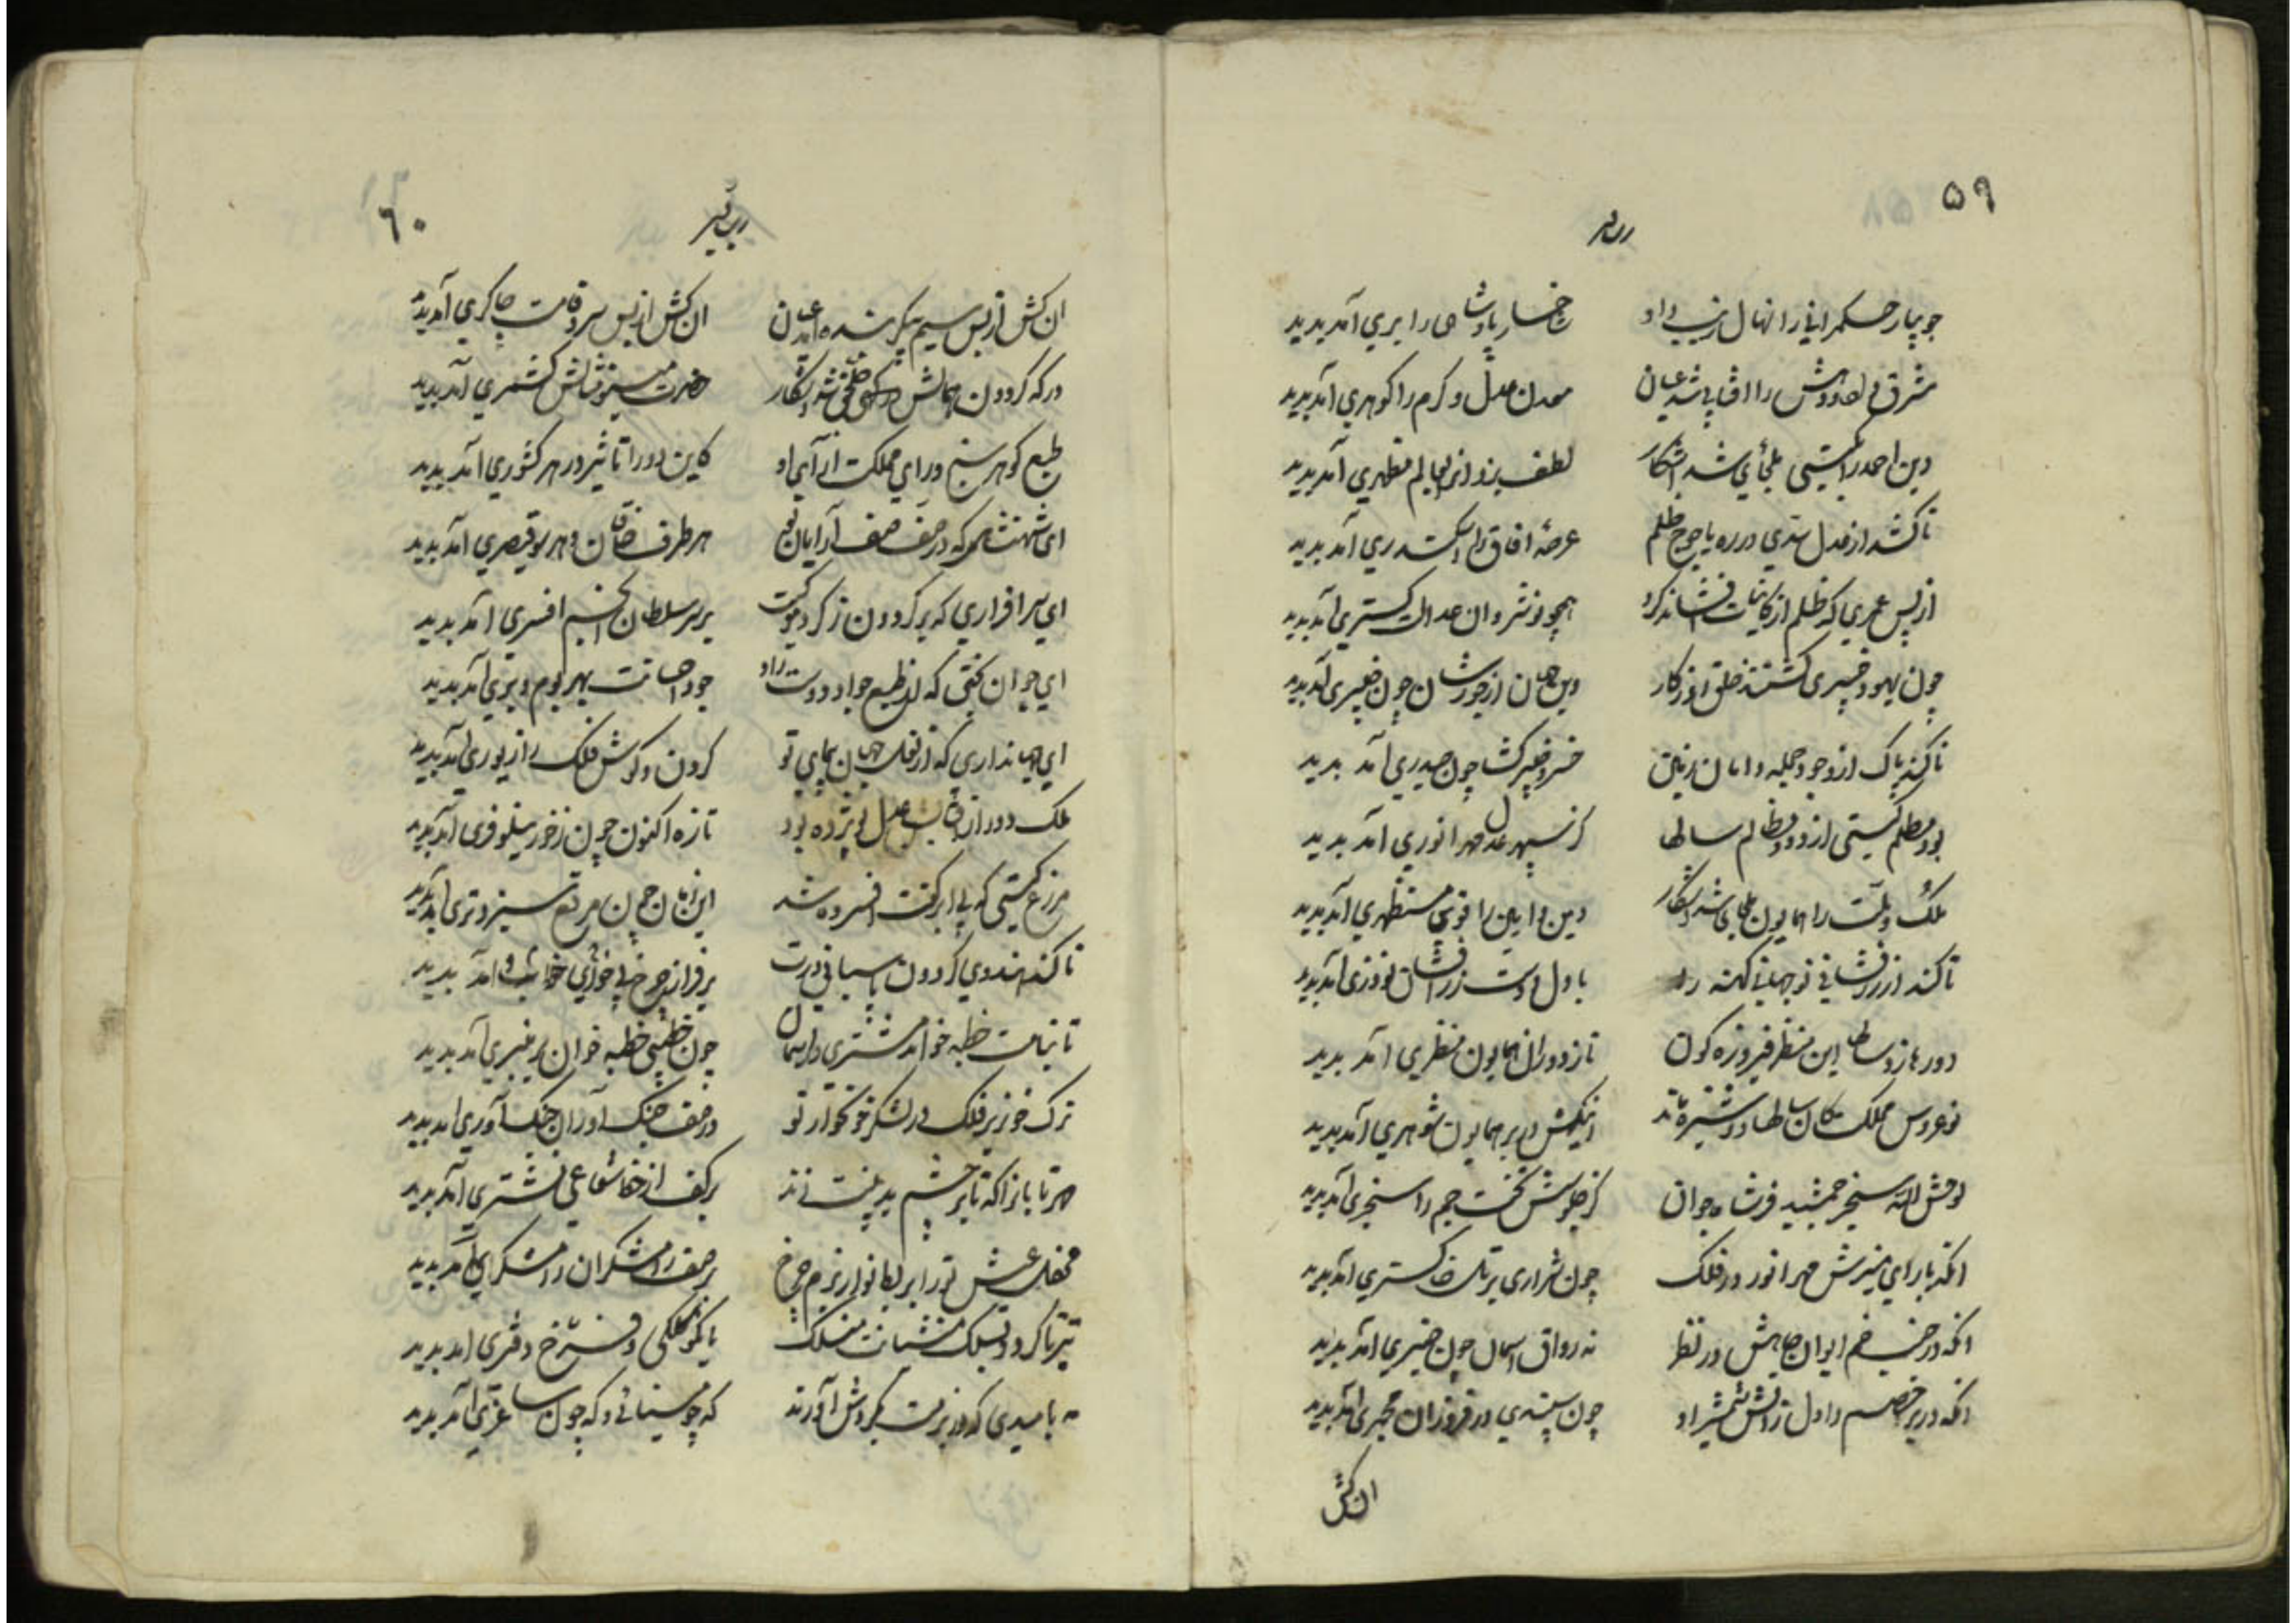 ۵۹
جویبار حکمرانی را نهال زیب داد رخسار پادشاهی را بری آمد پدید
مشرق را آفتابی شد عیان معدن عدل و کرم را گوهری آمد پدید
دین احمد را ملجأی شد آشکار لطف یزدانی بعالم مظهری آمد پدید
تا کشد از عدل سدی در ره یاجوج ظلم عرصهٔ آفاق را اسکندری آمد پدید
از پس عمری که ظلم از کاینات همچو نوشروان عدالت گستری آمد پدید
چون یهود خیبری گشتند خلق دین جهان از جورشان چون خیبری آمد پدید
تا کند پاک از وجود جمله دامان زمین خسرو خیبر گشا چون حیدری آمد پدید
بود مظلم گیتی از دود مظالم سالها کز سپهر عدل مهر انوری آمد پدید
ملک و ملت را همایون ملجای شد آشکار دین و آیین را قوی مستظهری آمد پدید
تا کند از زرفشانی نو جهان کهنه را با دل و دست زرافشان نوذری آمد پدید
دور ماند این منظر فیروزه گون تا ز دوران همایون منظری آمد پدید
نوعروس مملکت کان سالها دوشیزه ماند اینکش در بر همایون شوهری آمد پدید
لوحش الله سنجر جمشید فر شاه جوان کز جلوسش تخت جم را سنجری آمد پدید
آنکه با رای منیرش مهر انور در فلک چون شراری بر تل خاکستری آمد پدید
آنکه در جنب خم ایوان جاهش در نظر نه رواق آسمان چون چنبری آمد پدید
آنکه در بر خصم را دل ز آتش شمشیر او چون سپندی در فروزان مجمری آمد پدید
ان کش
۶۰
ان کش از بس سیم پیکر بنده آمد ان کش از بس سرو قامت چاکری آمد پدید
درگه گردون همالش حضرت مینو مثالش کشمری آمد پدید
طبع گوهر سنج و رای مملکت آرای او کاین دو را تأثیر در هر کشوری آمد پدید
ای شهنشاهی که در صف صف آرایان هر طرف خاقان و هر سو قیصری آمد پدید
ای سرافرازی که بر گردون ز گرد موکبت بر سر سلطان انجم افسری آمد پدید
ای جوان بختی که از طبع جواد و دست راد جود و احسانت بهر بوم و بری آمد پدید
ای جهانداری که از نعل جهان پیمای تو گردن و گوش فلک را زیوری آمد پدید
ملک دور از عدل تو پژمرده بود تازه اکنون چون ز خور نیلوفری آمد پدید
مزرع گیتی که بی ابر کفت افسرده شد این زمان چون مرتع سبز و تری آمد پدید
تا کند هندوی گردون پاسبانی درت بر فراز چرخ آمد پدید
تا بنامت خطبه خواند مشتری در آسمان چون خطیبی خطبه خوان بر منبری آمد پدید
ترک خونریز فلک در لشکر خونخوار تو در صف جنگ آوران جنگ آوری آمد پدید
مهر تابان را که تا بر چشم بدبینت زند بر کف از خط شعاعی نشتری آمد پدید
محفل عیش تو را بربط نواز بزم چرخ بر صف رامشگران رامشگری آمد پدید
تیر تا گردد بسلک منشیانت منسلک با نکو کلکی و فرخ دفتری آمد پدید
مه بامیدی که در بزمت بگردش آورند گه چو مینائی و گه چون ساغری آمد پدید